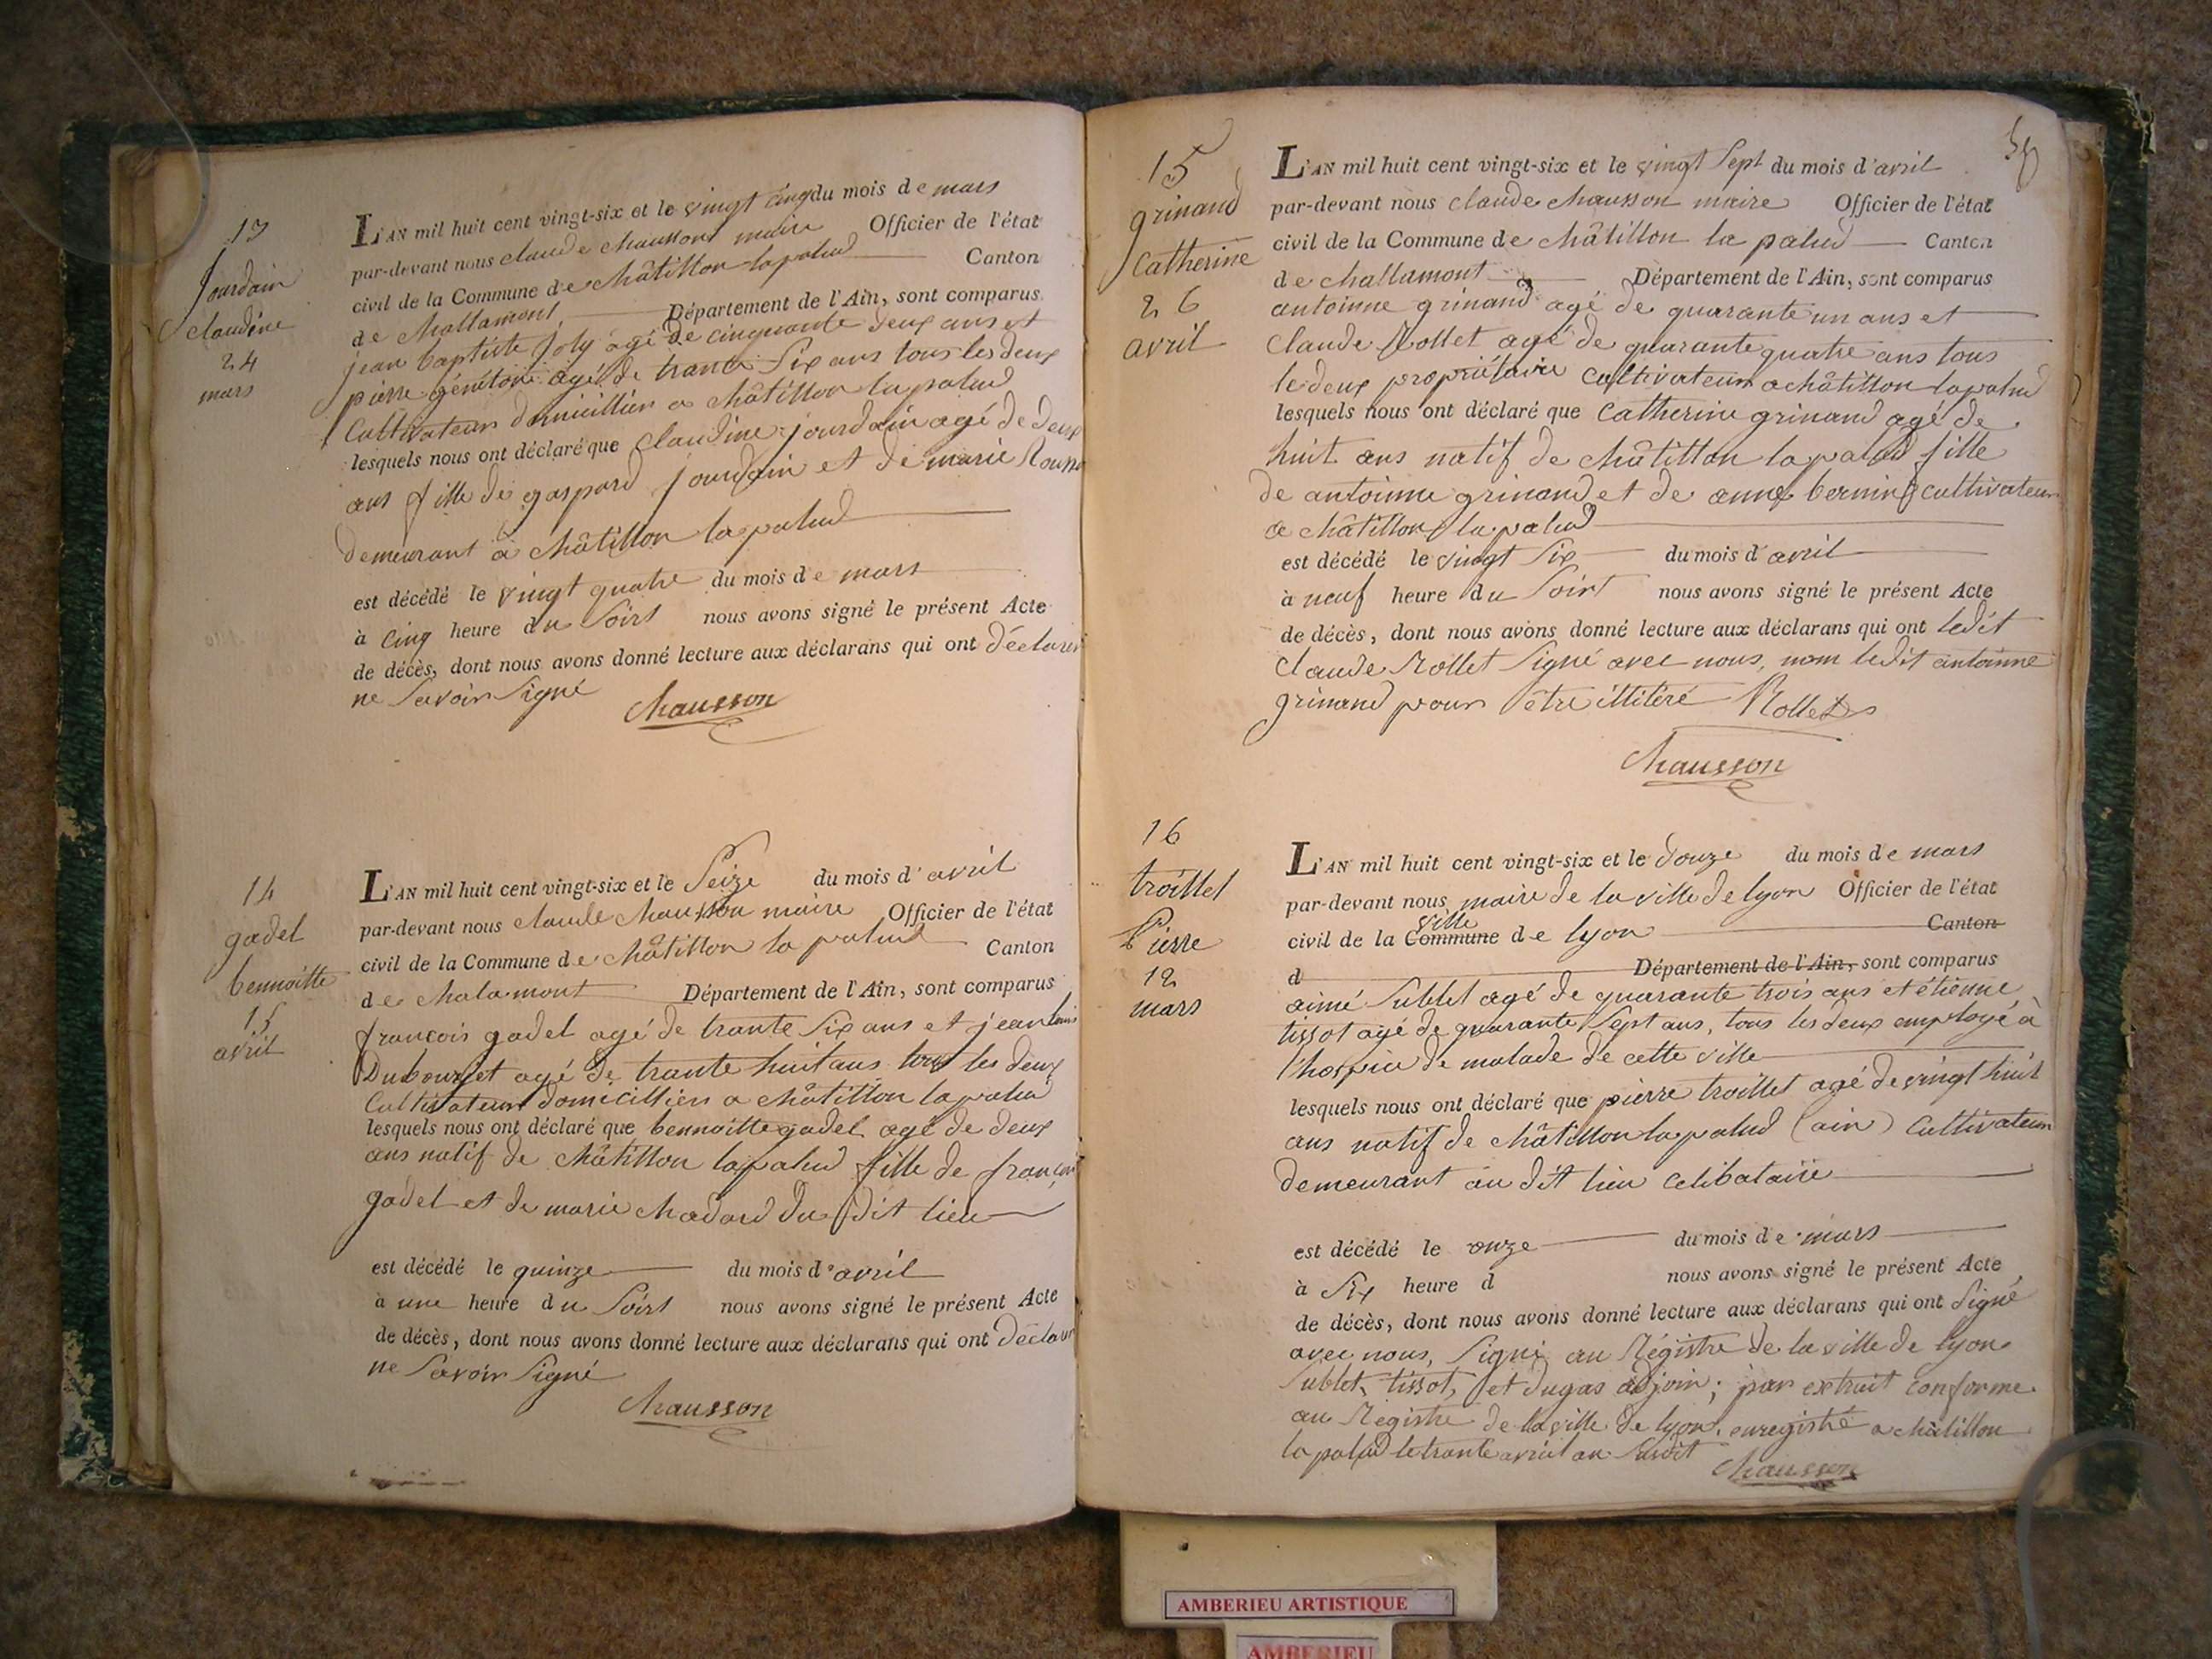 13
jourdain
claudine
24
mars
L'AN mil huit cent vingt-six et le vingt cinq du mois de mars
par-devant nous claude chausson maire Officier de l'état
civil de la Commune de châtillon lapalud Canton
de challamont Département de l'Ain, sont comparus
jean baptiste joly agé de cinquante deux ans et
pierre génétoni agé de trante six ans tous les deux
Cultivateurs domicilliér a châtillon lapalud
lesquels nous ont déclaré que claudine jourdain agé de deux
ans fille de gaspard jourdain et de marie
demeurant à châtillon lapalud
est décédé le vingt quatre du mois de mars
à cinq heure du soirt nous avons signé le présent Acte
de décès, dont nous avons donné lecture aux déclarans qui ont déclarér
ne savoir signé
chausson
14
gadel
bennoitte
15
avril
L'AN mil huit cent vingt-six et le seize du mois d'avril
par-devant nous claude chausson maire Officier de l'état
civil de la Commune de châtillon la palud Canton
de chalamont Département de l'Ain, sont comparus
francois gadel agé de trante six ans et jean louis
Dubourget agé de trante huit ans tous les deux
Cultivateurs domicilliér a châtillon lapalud
lesquels nous ont déclaré que bennoitte gadel agé de deux
ans natif de châtillon lapalud fille de françois
gadel et de marie chadard du dit lieu
est décédé le quinze du mois d'avril
à une heure du soirt nous avons signé le présent Acte
de décès, dont nous avons donné lecture aux déclarans qui ont déclarér
ne savoir signé
chausson
15
grinand
catherine
26
avril
L'AN mil huit cent vingt-six et le vingt sept du mois d'avril
par-devant nous claude chausson maire Officier de l'état
civil de la Commune de châtillon la palud Canton
de challamont Département de l'Ain, sont comparus
antoinne grinand agé de quarante un ans et
claude Rollet agé de quarante quatre ans tous
le deux propriétaire cultivateurs a châtillon lapalud
lesquels nous ont déclaré que catherine grinand agé de
huit ans natif de châtillon lapalud fille
de antoinne grinand et de anne bernin cultivateurs
a châtillon lapalud
est décédé le vingt six du mois d'avril
à neuf heure du soirt nous avons signé le présent Acte
de décès, dont nous avons donné lecture aux déclarans qui ont ledit
claude Rollet signé avec nous, nom ledit antoinne
grinand pour être illitéré Rollet
chausson
16
troillet
Pierre
12
mars
L'AN mil huit cent vingt-six et le douze du mois de mars
par-devant nous maire de la ville de lyon Officier de l'état
ville
civil de la Commune de lyon Canton
d Département de l'Ain, sont comparus
aimé sublet agé de quarante trois ans et étienne
tissot agé de quarante sept ans, tous les deux employé à
l'hospice de malade de cette ville
lesquels nous ont déclaré que pierre troillet agé de vingt huit
ans natif de châtillon lapalud (ain) cultivateur
demeurant au dit lieu célibataire
est décédé le onze du mois de mars
à six heure d nous avons signé le présent Acte
de décès, dont nous avons donné lecture aux déclarans qui ont signé
avec nous, signé au Régistre de la ville de lyon
sublet, tissot, et dugas adjoin; par extrait conforme
au Régistre de la ville de lyon. enregistré a châtillon
la palud le trante avril an susdit
chausson
AMBERIEU ARTISTIQUE
AMBERIEU